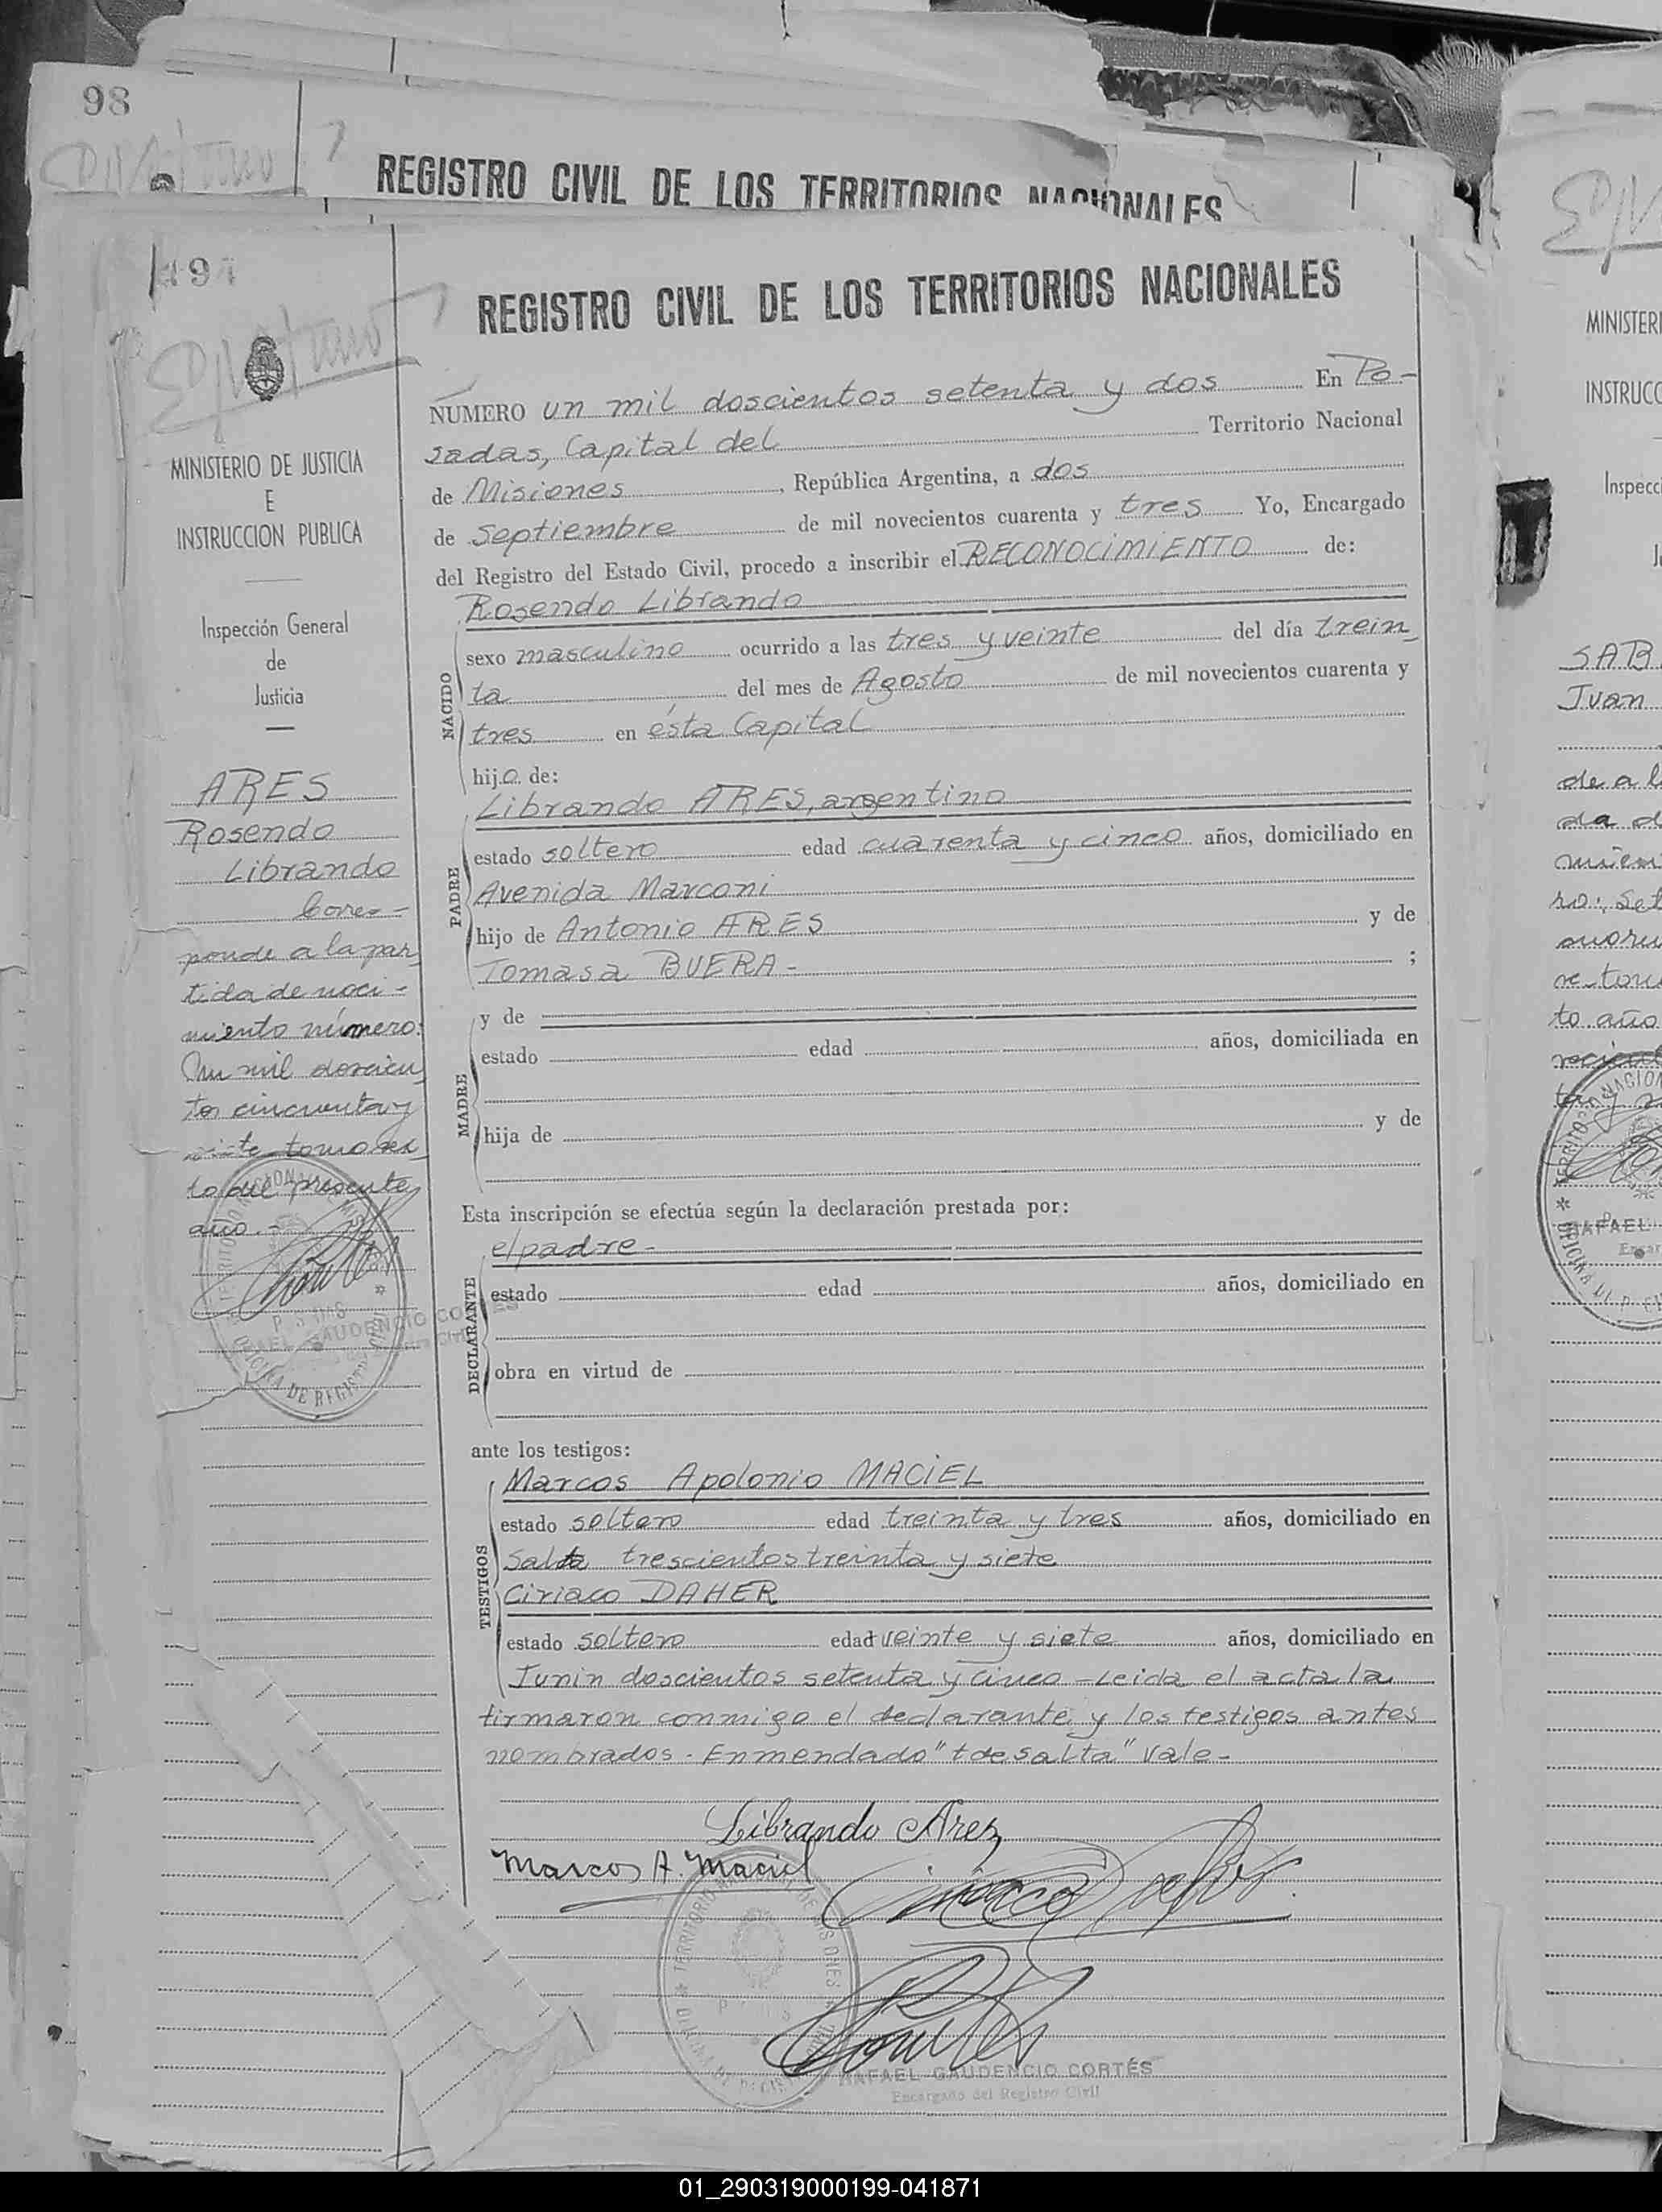 98
REGISTRO CIVIL DE LOS TERRITORIOS NACIONALES
REGISTRO CIVIL DE LOS TERRITORIOS NACIONALES
MINISTERIO DE JUSTICIA
E
INSTRUCCION PUBLICA
Inspección General
de
Justicia
ARES
Rosendo
Librando
Corres-
ponde a la par
tida de naci-
miento número:
Un mil doscien
tos cincuenta y
siete tomo sex
to del presente
año.-
NUMERO un mil doscientos setenta y dos En Po-
sadas, Capital del Territorio Nacional
de Misiones, República Argentina, a dos
de septiembre de mil novecientos cuarenta y tres Yo, Encargado
del Registro del Estado Civil, procedo a inscribir el RECONOCIMIENTO de:
Rosendo Librando
NACIDO
sexo masculino ocurrido a las tres y veinte del día trein
ta del mes de Agosto de mil novecientos cuarenta y
tres en ésta Capital
hijo de:
Librando ARES, argentino
PADRE
estado soltero edad cuarenta y cinco años, domiciliado en
Avenida Marconi
hijo de Antonio ARES y de
Tomasa BUERA- ;
MADRE
y de
estado edad años, domiciliada en
hija de y de
Esta inscripción se efectúa según la declaración prestada por:
el padre-
DECLARANTE
estado edad años, domiciliado en
obra en virtud de
ante los testigos:
TESTIGOS
Marcos Apolonio MACIEL
estado soltero edad treinta y tres años, domiciliado en
Salta trescientos treinta y siete
Ciriaco DAHER
estado soltero edad veinte y siete años, domiciliado en
Junin doscientos setenta y cinco -Leida el acta la
firmaron conmigo el declarante y los testigos antes
nombrados. Enmendado "t de salta" Vale-
Librando Ares
Marcos A. Maciel
RAFAEL GAUDENCIO CORTÉS
Encargado del Registro Civil
MINISTERI
INSTRUCC
Inspecc
SAB
Juan
01_290319000199-041871